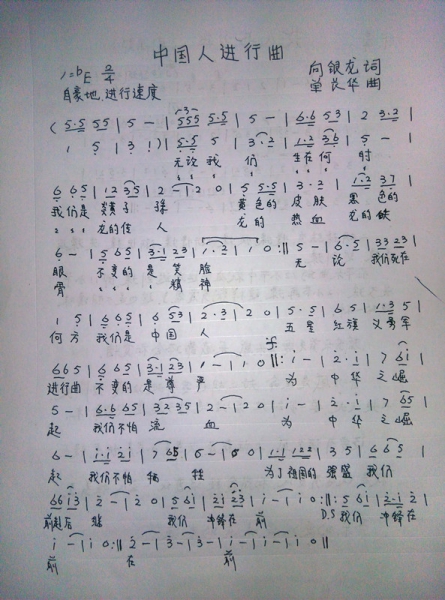 中国人进行曲
1=♭E 2/4 向银龙 词
自豪地 进行速度 单长华 曲
(5·5 55 | 5 - | 555 5·5 | 5 - | 6·6 53 | 2 3·2 |
1 5 | 3 1) | 5·5 5 | 3·2 | 1·2 36 | 5 - |
无论我们 生在何时
6 65 | 12 35 | 2 - | 2 0 | 5 5·5 | 3·2 | 1·2 37 |
我们是炎黄子孙 黄色的皮肤 黑色的
龙的传人 龙的热血 龙的
6 - | 5 65 | 3·1 23 | 1·2 | 1 0 :|| 5 - | 6·5 | 33 23 |
眼 不变的是笑脸 无论 我们死在
骨 精神
1 5 | 6 65 | 6 53 | 2·3 | 2 0 | 5·5 | 6 5 | 1·3 5 |
何方 我们是中国人 五星红旗 义勇军
665 | 6 65 | 3·1 23 | 1 - | 1 0 :|| i - | 2·i | 7 6i |
进行曲 不变的是尊严 为中华之崛
5 - | 6·6 65 | 32 35 | 2 - | 2 0 | i - | 2·i | 7 65 |
起 我们不怕流血 为中华之崛
6 - | i·i 2i | 7 65 | 5 - | 5 0 | 1·1 122 | 3 5 | 6 65 |
起 我们不怕牺牲 为了祖国的强盛 我们
66 i3 | 2 - | 2 0 | 5 6i | 2i 23 | i - | i 0 :|| 5 6i | 2·i 2 |
前赴后继 我们冲锋在前 D.S 我们冲锋在
i - | i 0 :|| 2 - | 3 - | 3 - | i - | i - | i 0 ||
前 在 前